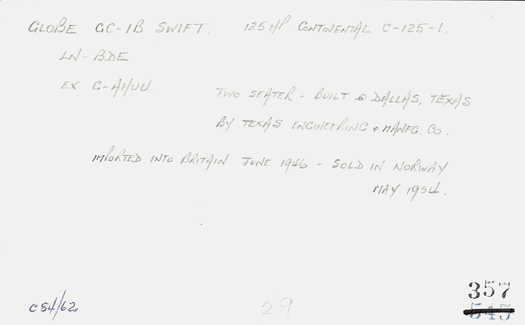 GLOBE GC-1B SWIFT. 125 H/P CONTINENTAL C-125-1.
LN-BDE
EX G-AHUU.
TWO SEATER - BUILT @ DALLAS, TEXAS
BY TEXAS ENGINEERING & MANFG. CO.
IMPORTED INTO BRITAIN JUNE 1946 - SOLD IN NORWAY
MAY 1954.
C84/62
29
357
545